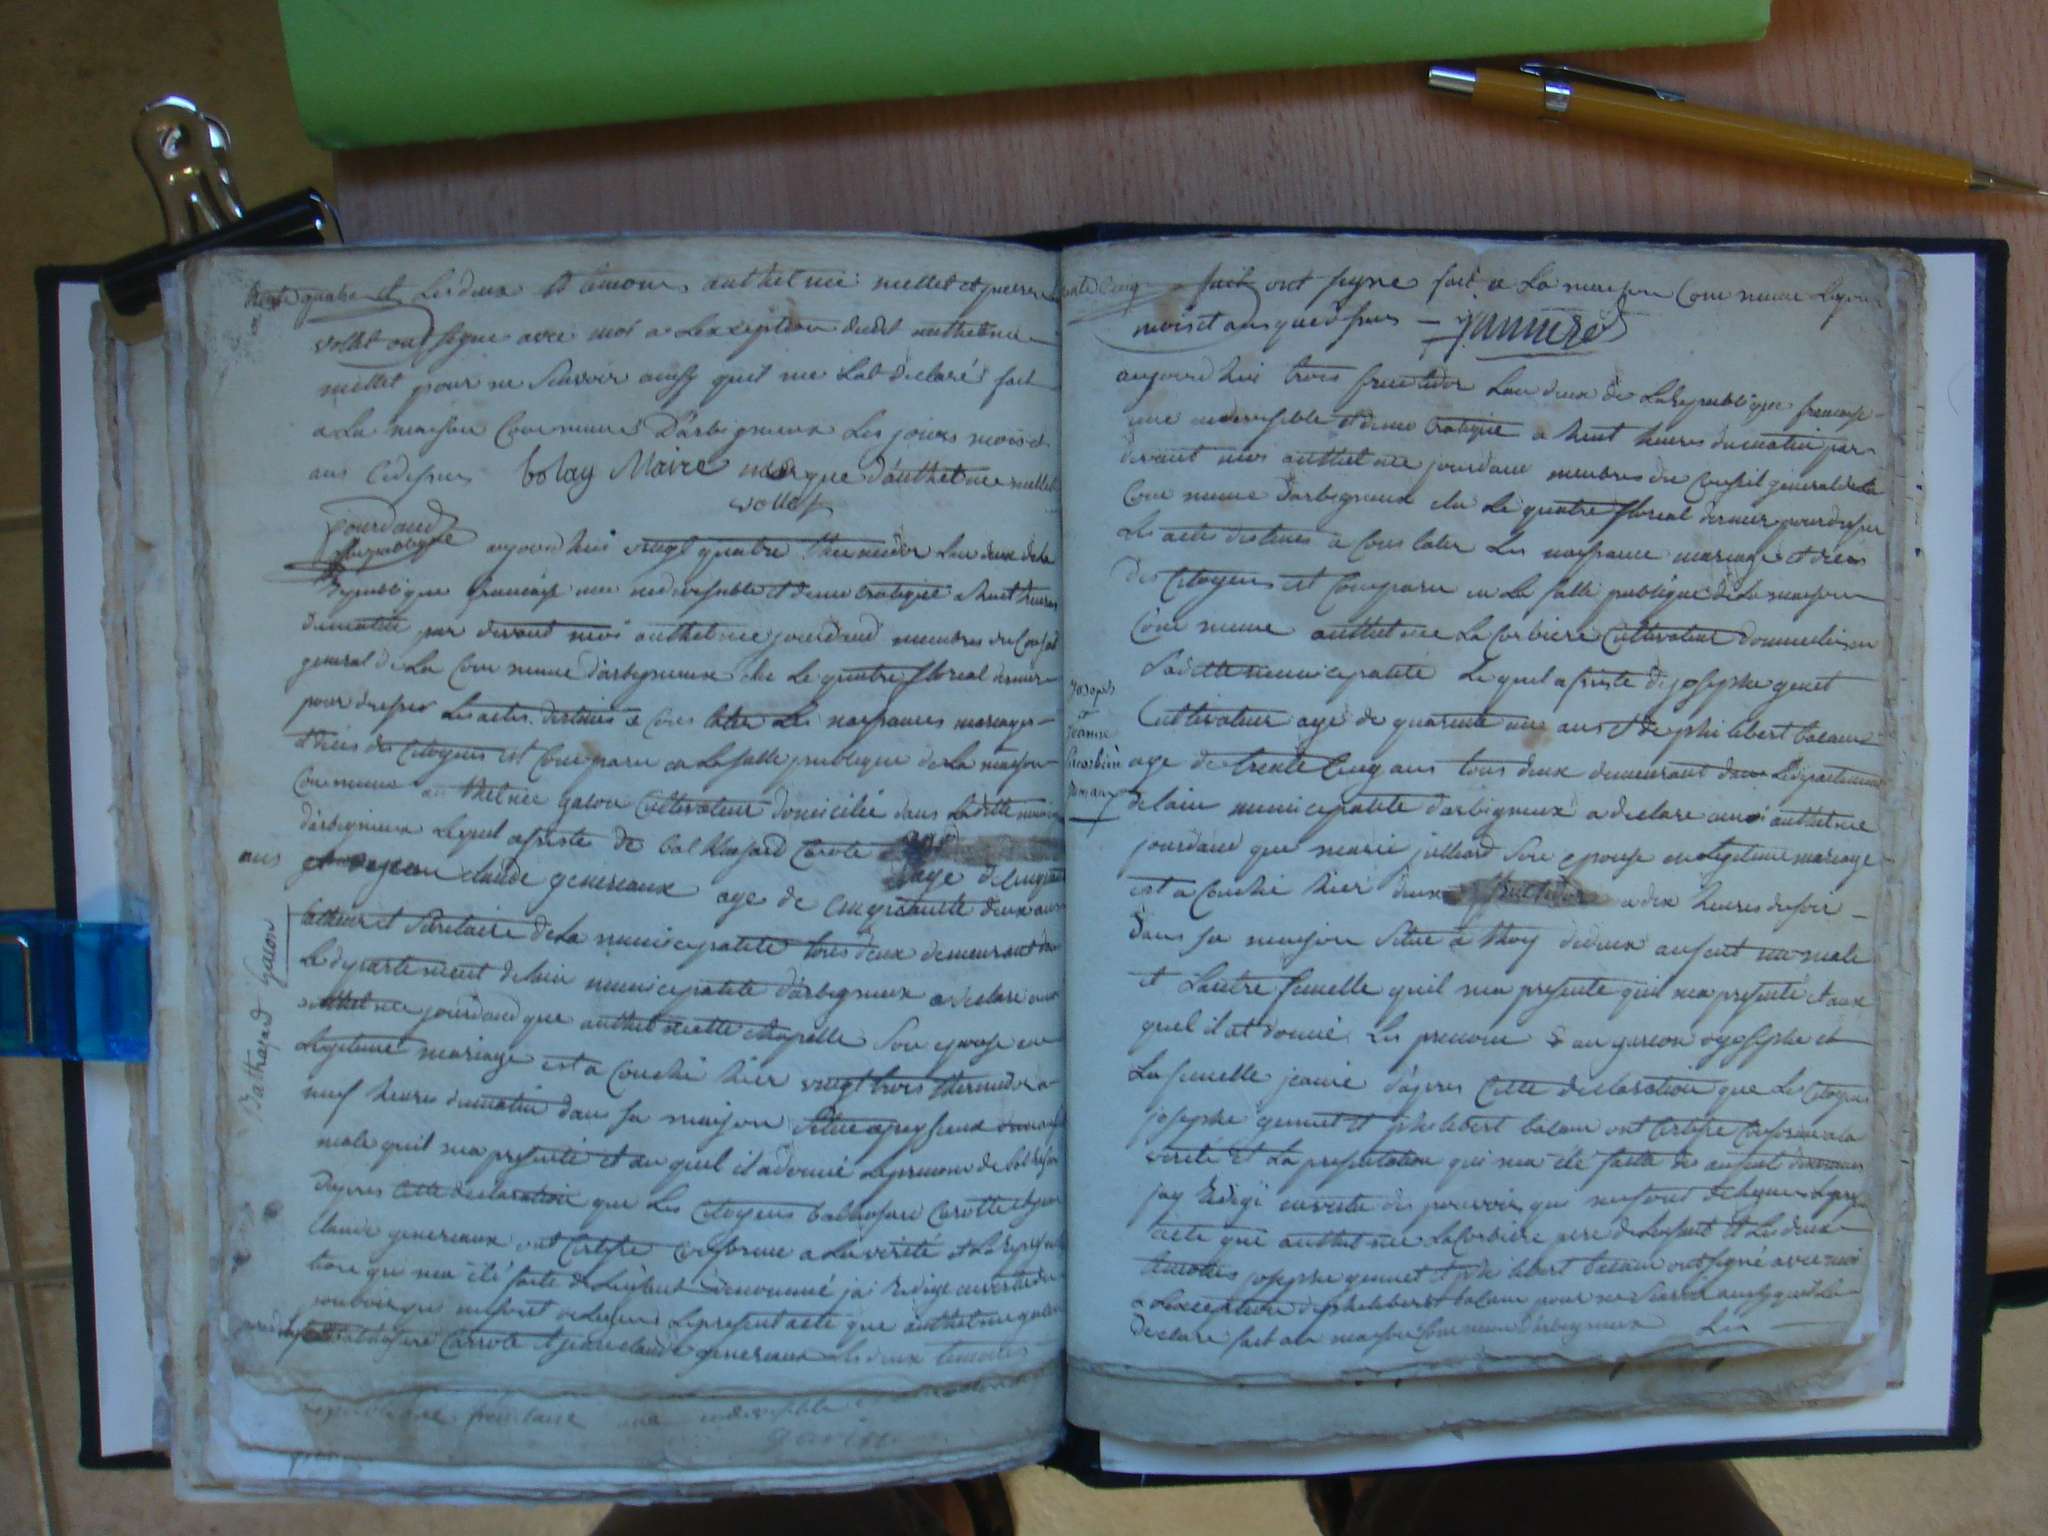 trente quatre et Les deux temoins anthelme mellet et pierre
vollet ont signe avec moi a Lexception dudit anthelme
mellet pour ne Scavoir ainsy quil me Lat declaré fait
a La maison Commune D'arbignieux Les jours mois et
ans Cidessus bolay Maire marque d'anthelme mellet
vollet
jourdand
officier publique
aujourdhui vingt quatre thermidor Lan deux de la
Republique francaise une indivisible et democratique a huit heures
du matin par devant moi anthelme jourdand membres du Conseil
general de La Commune d'arbignieux elu Le quatre floreal dernier
pour dresser Les actes destinés a Constater Les naissances mariages
et deces des Citoyens est Comparu en La salle publique de La maison
Commune anthelme galon Cultivateur domicilié dans Laditte
d'arbignieux Lequel assisté de balthasard Carote agé de cinquante
ans et de jean claude genereaux age de Cinquante deux ans
et Secretaire de La municipalité tous deux demeurant dans
Le departement de lain municipalite d'arbignieux a declaré a moi
anthelme jourdand que anthelmette Chapelle Son epouse en
Legitime mariage est a Couché hier vingt trois thermidor a
neuf heures du matin dans Sa maison Situe a peyzieux
male quil ma presenté et au quel il a donné Le prenom de
Dapres Cette declaration que Les Citoyens balthasard Carotte et jean
Claude genereaux ont Certifié Conforme a La verité et La
tion qui ma été faite de Lenfant denommé jai Redigé en vertu des
pouvoirs qui me sont delegués Le present acte que anthelme galon
balthasard Carrote et jean claude genereaux Les deux temoins
Balthazard Galon
trente Cinq fait ont signe fait a La maison Commune Les jour
mois et ans que dessus
aujourdhui trois fructidor Lan deux de La Republique francaise
une indivisible et democratique a huit heures du matin par
devant moi anthelme jourdand membres du Conseil general de La
Commune d'arbignieux elu Le quatre floreal dernier pour dresser
Les actes destinés a Constater Les naissance mariage et deces
des Citoyens est Comparu en La salle publique de La maison
Commune anthelme La Corbiere Cultivateur domicilie en
Laditte municipalité Le quel assiste de josephe genet
Cultivateur agé de quarante une ans et de philibert balam
age de trente Cinq ans tous deux demeurant dans Le departement
de lain municipalite d'arbignieux a declare a moi anthelme
jourdand que marie julliard Son epouse en Legitime mariage
est a Couché hier deux fructidor a dix heures du soir
Dans sa maison Situe a thoy de deux enfant un male
et Lautre femelle quil ma presente quil ma presenté et aux
quel il at donné Les prenom au garcon josephe et
La femelle jeanne d'apres Cette declaration que Les Citoyens
josephe gennet et philibert balam ont Certifie Conforme a la
verité et La presentation qui ma été faitte des enfant denommes
jay Redigé en vertu des pouvoir qui me sont delegues Le present
acte que anthelme LaCorbiere pere de Lenfant et Les deux
temoins josephe gennet et philibert balam ont signé avec moi
a Lexception de philibert balam pour ne Scavoir ainsy quil La
Declaré fait au maison Commune d'arbignieux Les
Joseph
et
Jeanne
Lacorbière